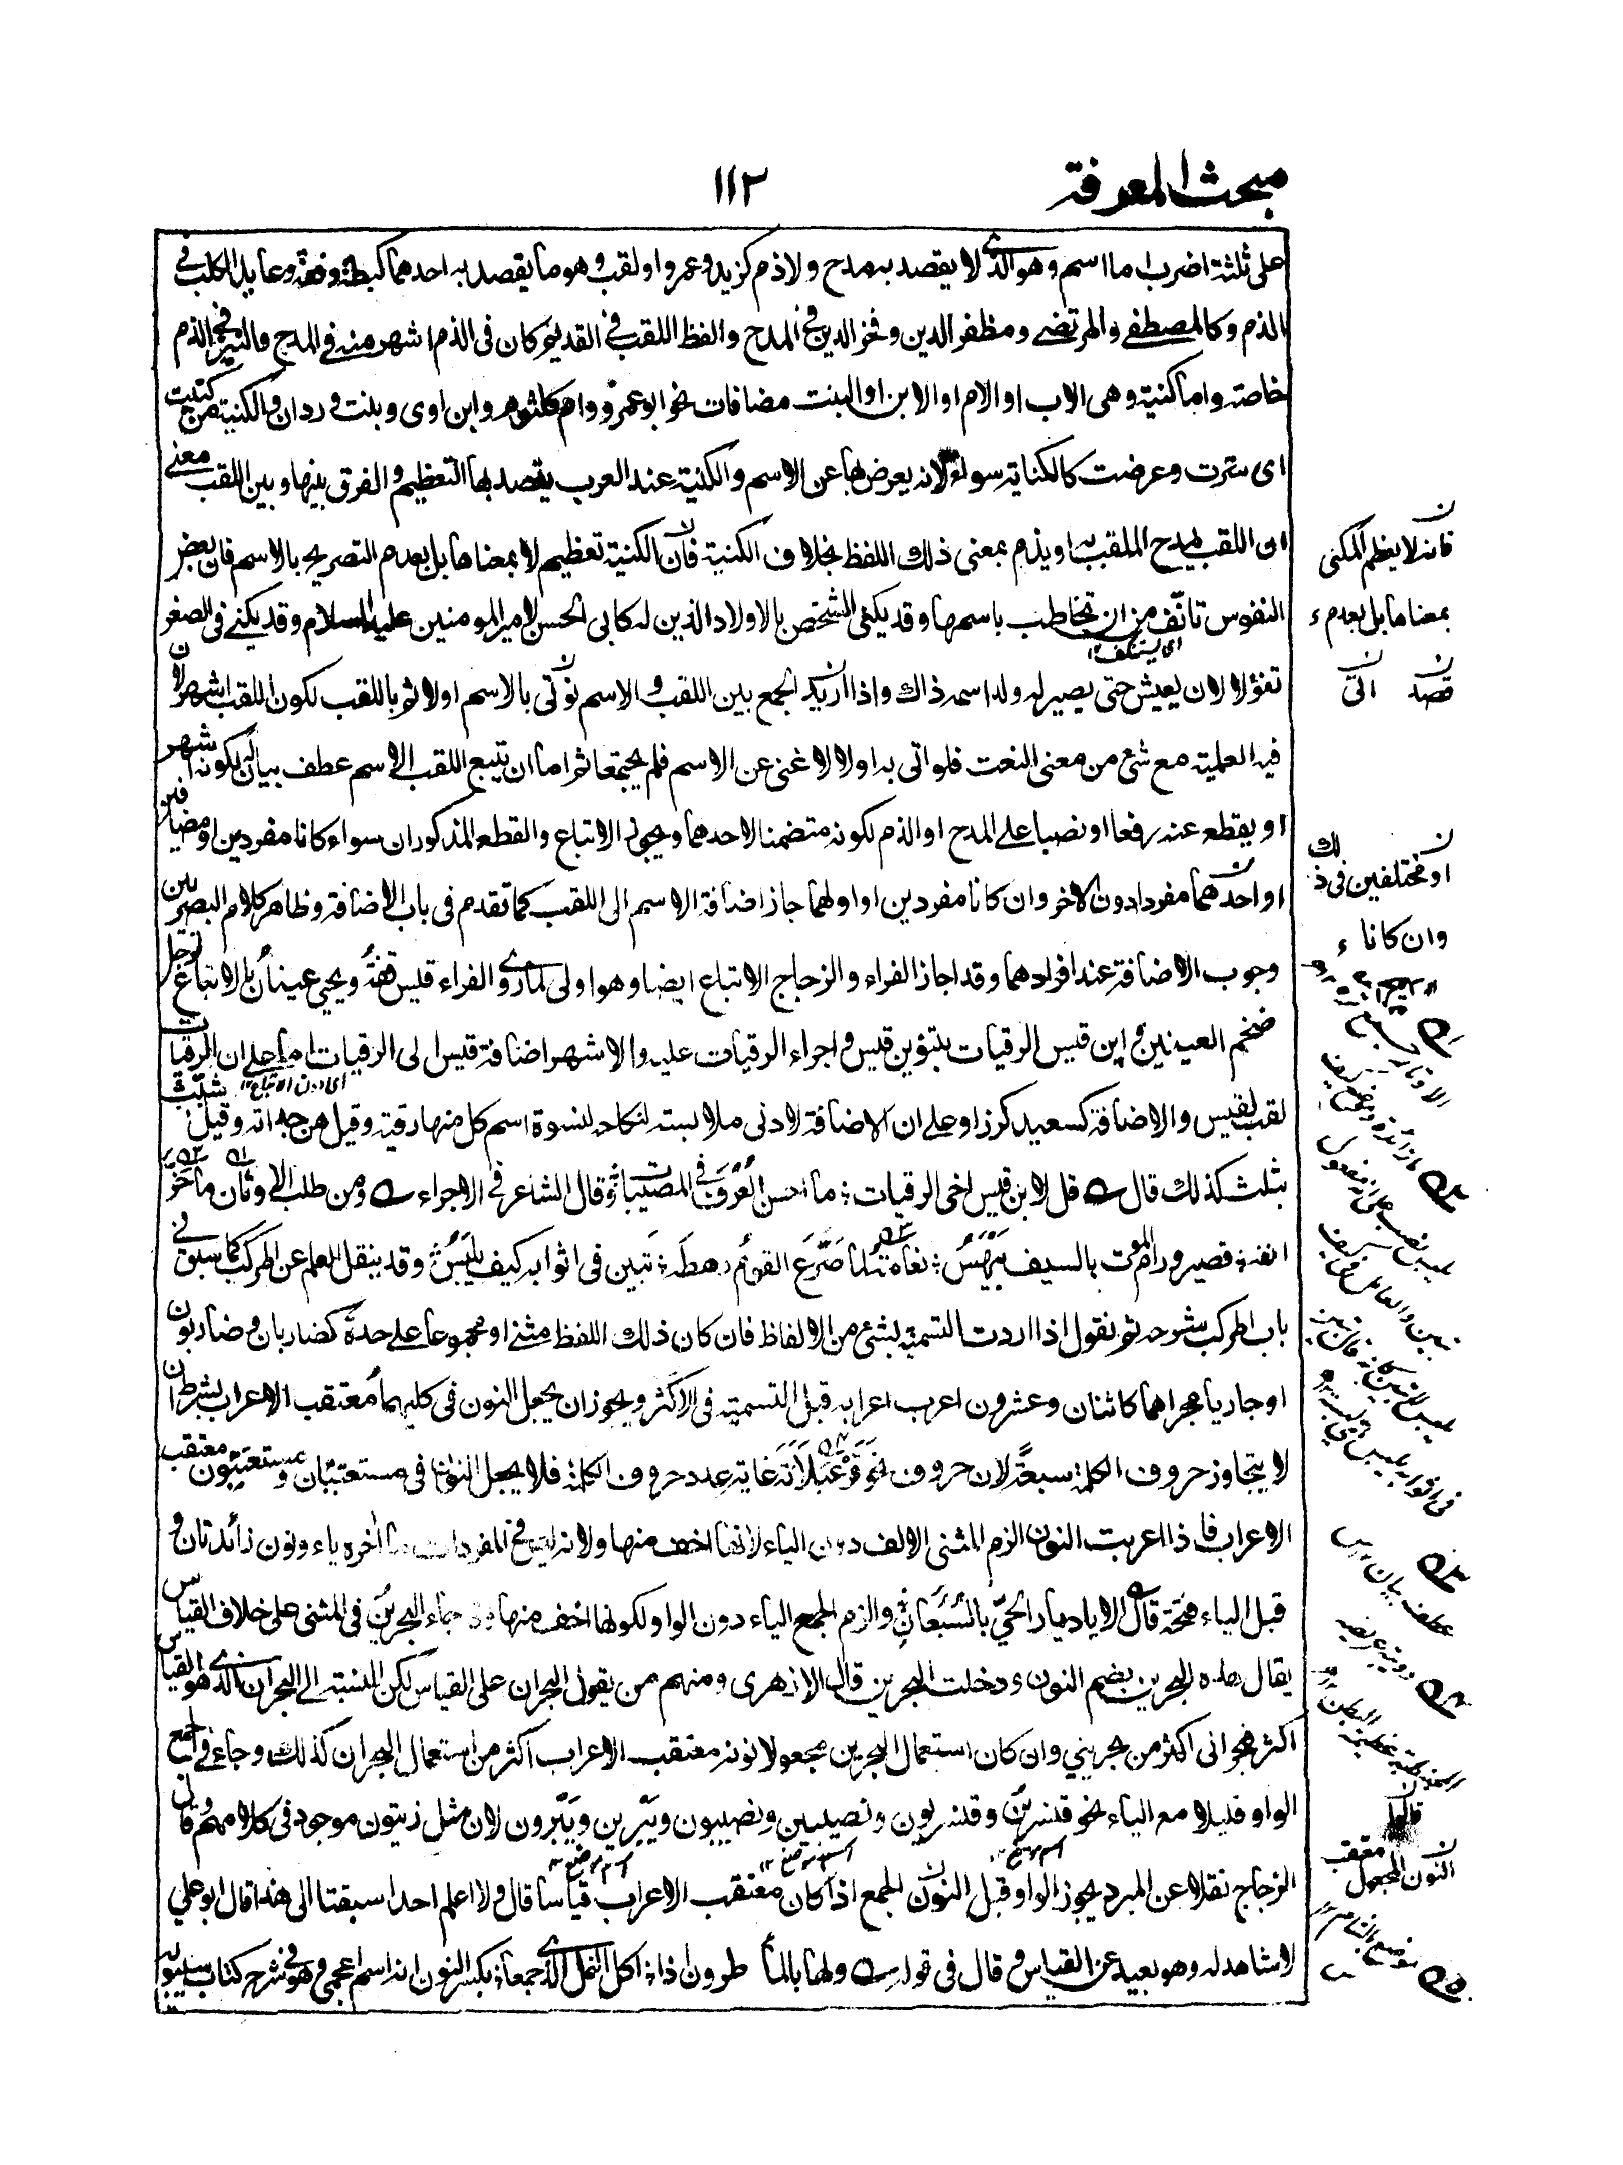 مبحث المعرفة
١١٢
على ثلثة اضرب اما اسم وهو الذى لا يقصد به مدح ولا ذم كزيد وعمرو او لقب وهو ما يقصد به احدهما كبطة وقفة وعايد الكلب فى
الذم وكالمصطفى والمرتضى ومظفر الدين وفخر الدين فى المدح والفظ اللقب فى القديم كان فى الذم اشهر منه فى المدح والنبز فى الذم
خاصة واما كنية وهى الاب او الام او الابن او البنت مضافات نحو ابو عمرو وام كلثوم وابن اوى وبنت وردان والكنية من كنيت
اى سترت وعرضت كالكناية سواء لانه يعرض بها عن الاسم والكنية عند العرب يقصد بها التعظيم والفرق بينها وبين اللقب معنى
ان اللقب يمدح الملقب به او يذم بمعنى ذلك اللفظ بخلاف الكنية فان الكنية تعظيم لا بمعناها بل بعدم التصريح بالاسم فان بعض
النفوس تانف من ان تخاطب باسمها وقد يكنى الشخص بالاولاد الذين له كابى الحسن لامير المومنين عليه السلام وقد يكنى فى الصغر
اى يستنكف ١٢
تفؤلا لان يعيش حتى يصير له ولد اسمه ذاك واذا اريد الجمع بين اللقب والاسم نوتى بالاسم اولا ثم باللقب لكون اللقب اشهر لان
فيه العلمية مع شئ من معنى النعت فلو اتى به اولا لاغنى عن الاسم فلم يجتمعا ثم اما ان يتبع اللقب الاسم عطف بيان له لكونه اشهر
او يقطع عنه رفعا او نصبا على المدح او الذم لكونه متضمنا لاحدهما ويجئ الاتباع والقطع المذكوران سواء كانا مفردين او مضافين
او احدهما مفردا دون الاخر وان كانا مفردين او اولهما جاز اضافة الاسم الى اللقب كما تقدم فى باب الاضافة وظاهر كلام البصريين
وجوب الاضافة عند افرادهما وقد اجاز الفراء والزجاج الاتباع ايضا وهو اولى لما روى الفراء قيس قفة ويحيى عينان بالاتباع لرجل
ضخم العينين وابن قيس الرقيات بتنوين قيس واجراء الرقيات عليه والاشهر اضافة قيس الى الرقيات اما على ان الرقيات
اى دون الاتباع ١٢
لقب لقيس والاضافة كسعيد كرز او على ان الاضافة لادنى ملابسة لنكاحه لنسوة اسم كل منها رقية وقيل من جداته وقيل شبب
بثلث كذلك قال قل لابن قيس اخى الرقيات ما احسن العرف فى المصيبات وقال الشاعر فى الاجراء ومن طلب الاوتار ما حز
انفه قصير ورام الموت بالسيف بيهس نعامة لما صرع القوم رهطه تبين فى اثوابه كيف يلبس وقد ينقل العلم عن المركب كما سبق فى
باب المركب شرحه ثم نقول اذا اردت التسمية بشئ من الالفاظ فان كان ذلك اللفظ مثنى او مجموعا على حدة كضاربان وضاربون
او جاريا مجراهما كاثنان وعشرون اعرب اعرابه قبل التسمية فى الاكثر ويجوز ان يجعل النون فى كليهما معتقب الاعراب بشرط ان
لا يتجاوز حروف الكلمة سبعة لان حروف نحو قرعبلانة غاية عدد حروف الكلمة فلا يجعل النون فى مستعتبان ومستعتبون معتقب
الاعراب فاذا اعربت النون الزم المثنى الالف دون الياء لانها اخف منها ولانه ليس فى المفردات ما اخره ياء ونون زائدتان و
قبل الياء فتحة قال الا يا ديار الحى بالسبعان والزم الجمع الياء دون الواو لكونها اخف منها وقد جاء البحرين فى المثنى على خلاف القياس
يقال هذه البحرين بضم النون ودخلت البحرين قال الازهرى ومنهم من يقول البحران على القياس لكن النسبة الى البحران الذى هو القياس
اكثر فبحرانى اكثر من بحرينى وان كان استعمال البحرين مجعولا نونه معتقب الاعراب اكثر من استعمال البحران كذلك وجاء فى الجمع
الواو قليلا مع الياء نحو قنسرين وقنسرون ونصيبين ونصيبون ويبرين ويبرون لان مثل زيتون موجود فى كلامهم وقال
اسم موضع ١٢
اسم موضع ١٢
اسم موضع ١٢
الزجاج نقلا عن المبرد يجوز الواو قبل النون الجمع اذا كان معتقب الاعراب قياسا قال ولا اعلم احدا سبقنا الى هذا قال ابو على
لا شاهد له وهو بعيد عن القياس وقال فى قوله ولها بالماطرون اذا اكل النمل الذى جمعا بكسر النون انه اسم اعجمى وهو فى شرح كتاب سيبويه
فانه لا يعظم المكنى
بمعناها بل بعدم
قصد
اتى
او مختلفين فى ذلك
وان كانا
عطف بيان
النون المجعول معتقب